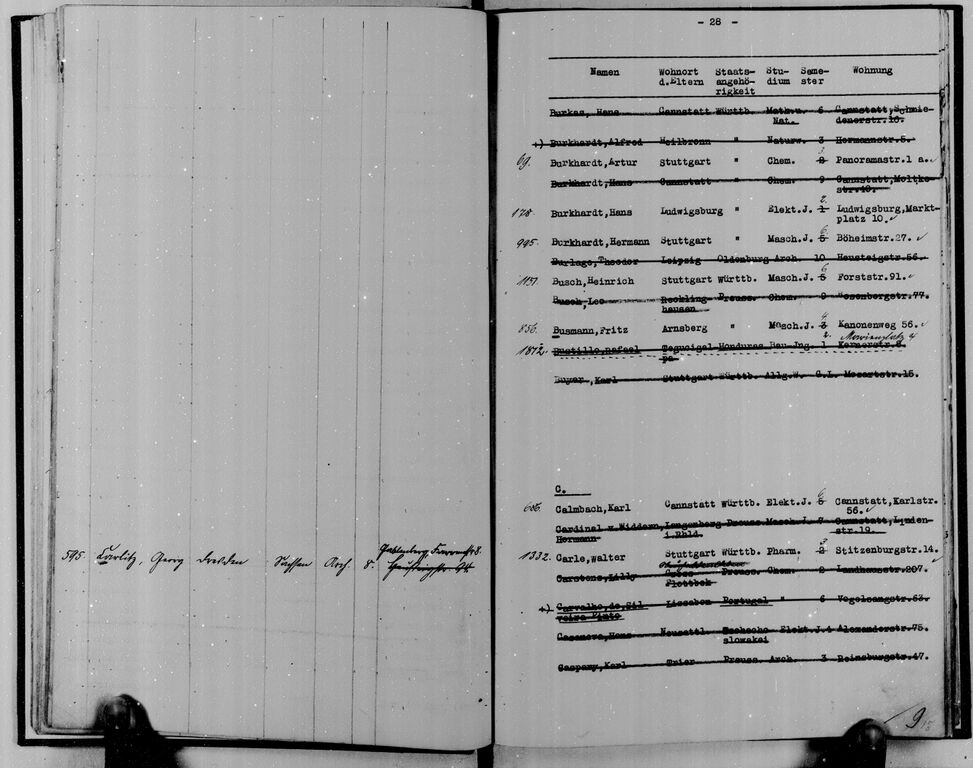 595. Carlitz, Georg Dresden Sachsen Arch. 8.
- 28 -
Namen Wohnort d.Eltern Staats-angehö-rigkeit Stu-dium Seme-ster Wohnung
Burkas, Hans Cannstatt Württb. Math.u. 6 Cannstatt,Schmie-
Nat. denerstr.16.
+) Burkhardt,Alfred Heilbronn " Naturw. 3 Hermannstr.5.
69. Burkhardt,Artur Stuttgart " Chem. 3 Panoramastr.1 a.
Burkhardt,Hans Cannstatt " Chem. 9 Cannstatt,Moltke-
str.40.
2.
178. Burkhardt,Hans Ludwigsburg " Elekt.J. 1 Ludwigsburg,Markt-
platz 10.
6
995. Burkhardt,Hermann Stuttgart " Masch.J. 5 Böheimstr.27.
Burlage,Theodor Leipzig Oldenburg Arch. 10 Heusteigstr.56.
6
1137. Busch,Heinrich Stuttgart Württb. Masch.J. 5 Forststr.91.
Busch,Leo Reckling- Preuss. Chem. 9 Rosenbergstr.77.
hausen
4
856. Busmann,Fritz Arnsberg " Masch.J. 3 Kanonenweg 56.
2.
1872. Bustillo,Rafael Tegucigal- Honduras Bau-Jng. 1 Kernerstr.8.
pa
Buyer,Karl Stuttgart Württb. Allg.W. G.L. Mozartstr.15.
C.
6
686. Calmbach,Karl Cannstatt Württb. Elekt.J. 5 Cannstatt,Karlstr.
56.
Cardinal v.Widdern, Langenberg Preuss. Masch.J. 7 Cannstatt,Linden-
Hermann i.Rhld. str.19.
3
1332. Carle,Walter Stuttgart Württb. Pharm. 2 Stitzenburgstr.14.
Carstens,Lilly Gross Preuss. Chem. 2 Landhausstr.207.
Flottbek
+) Carvalho,de,Sil- Lissabon Portugal " 6 Vogelsangstr.63.
veira Pinto
Casanova,Hans Neusattl Tschecho- Elekt.J.4 Alexanderstr.75.
slowakei
Caspary,Karl Trier Preuss. Arch. 3 Reinsburgstr.47.
9